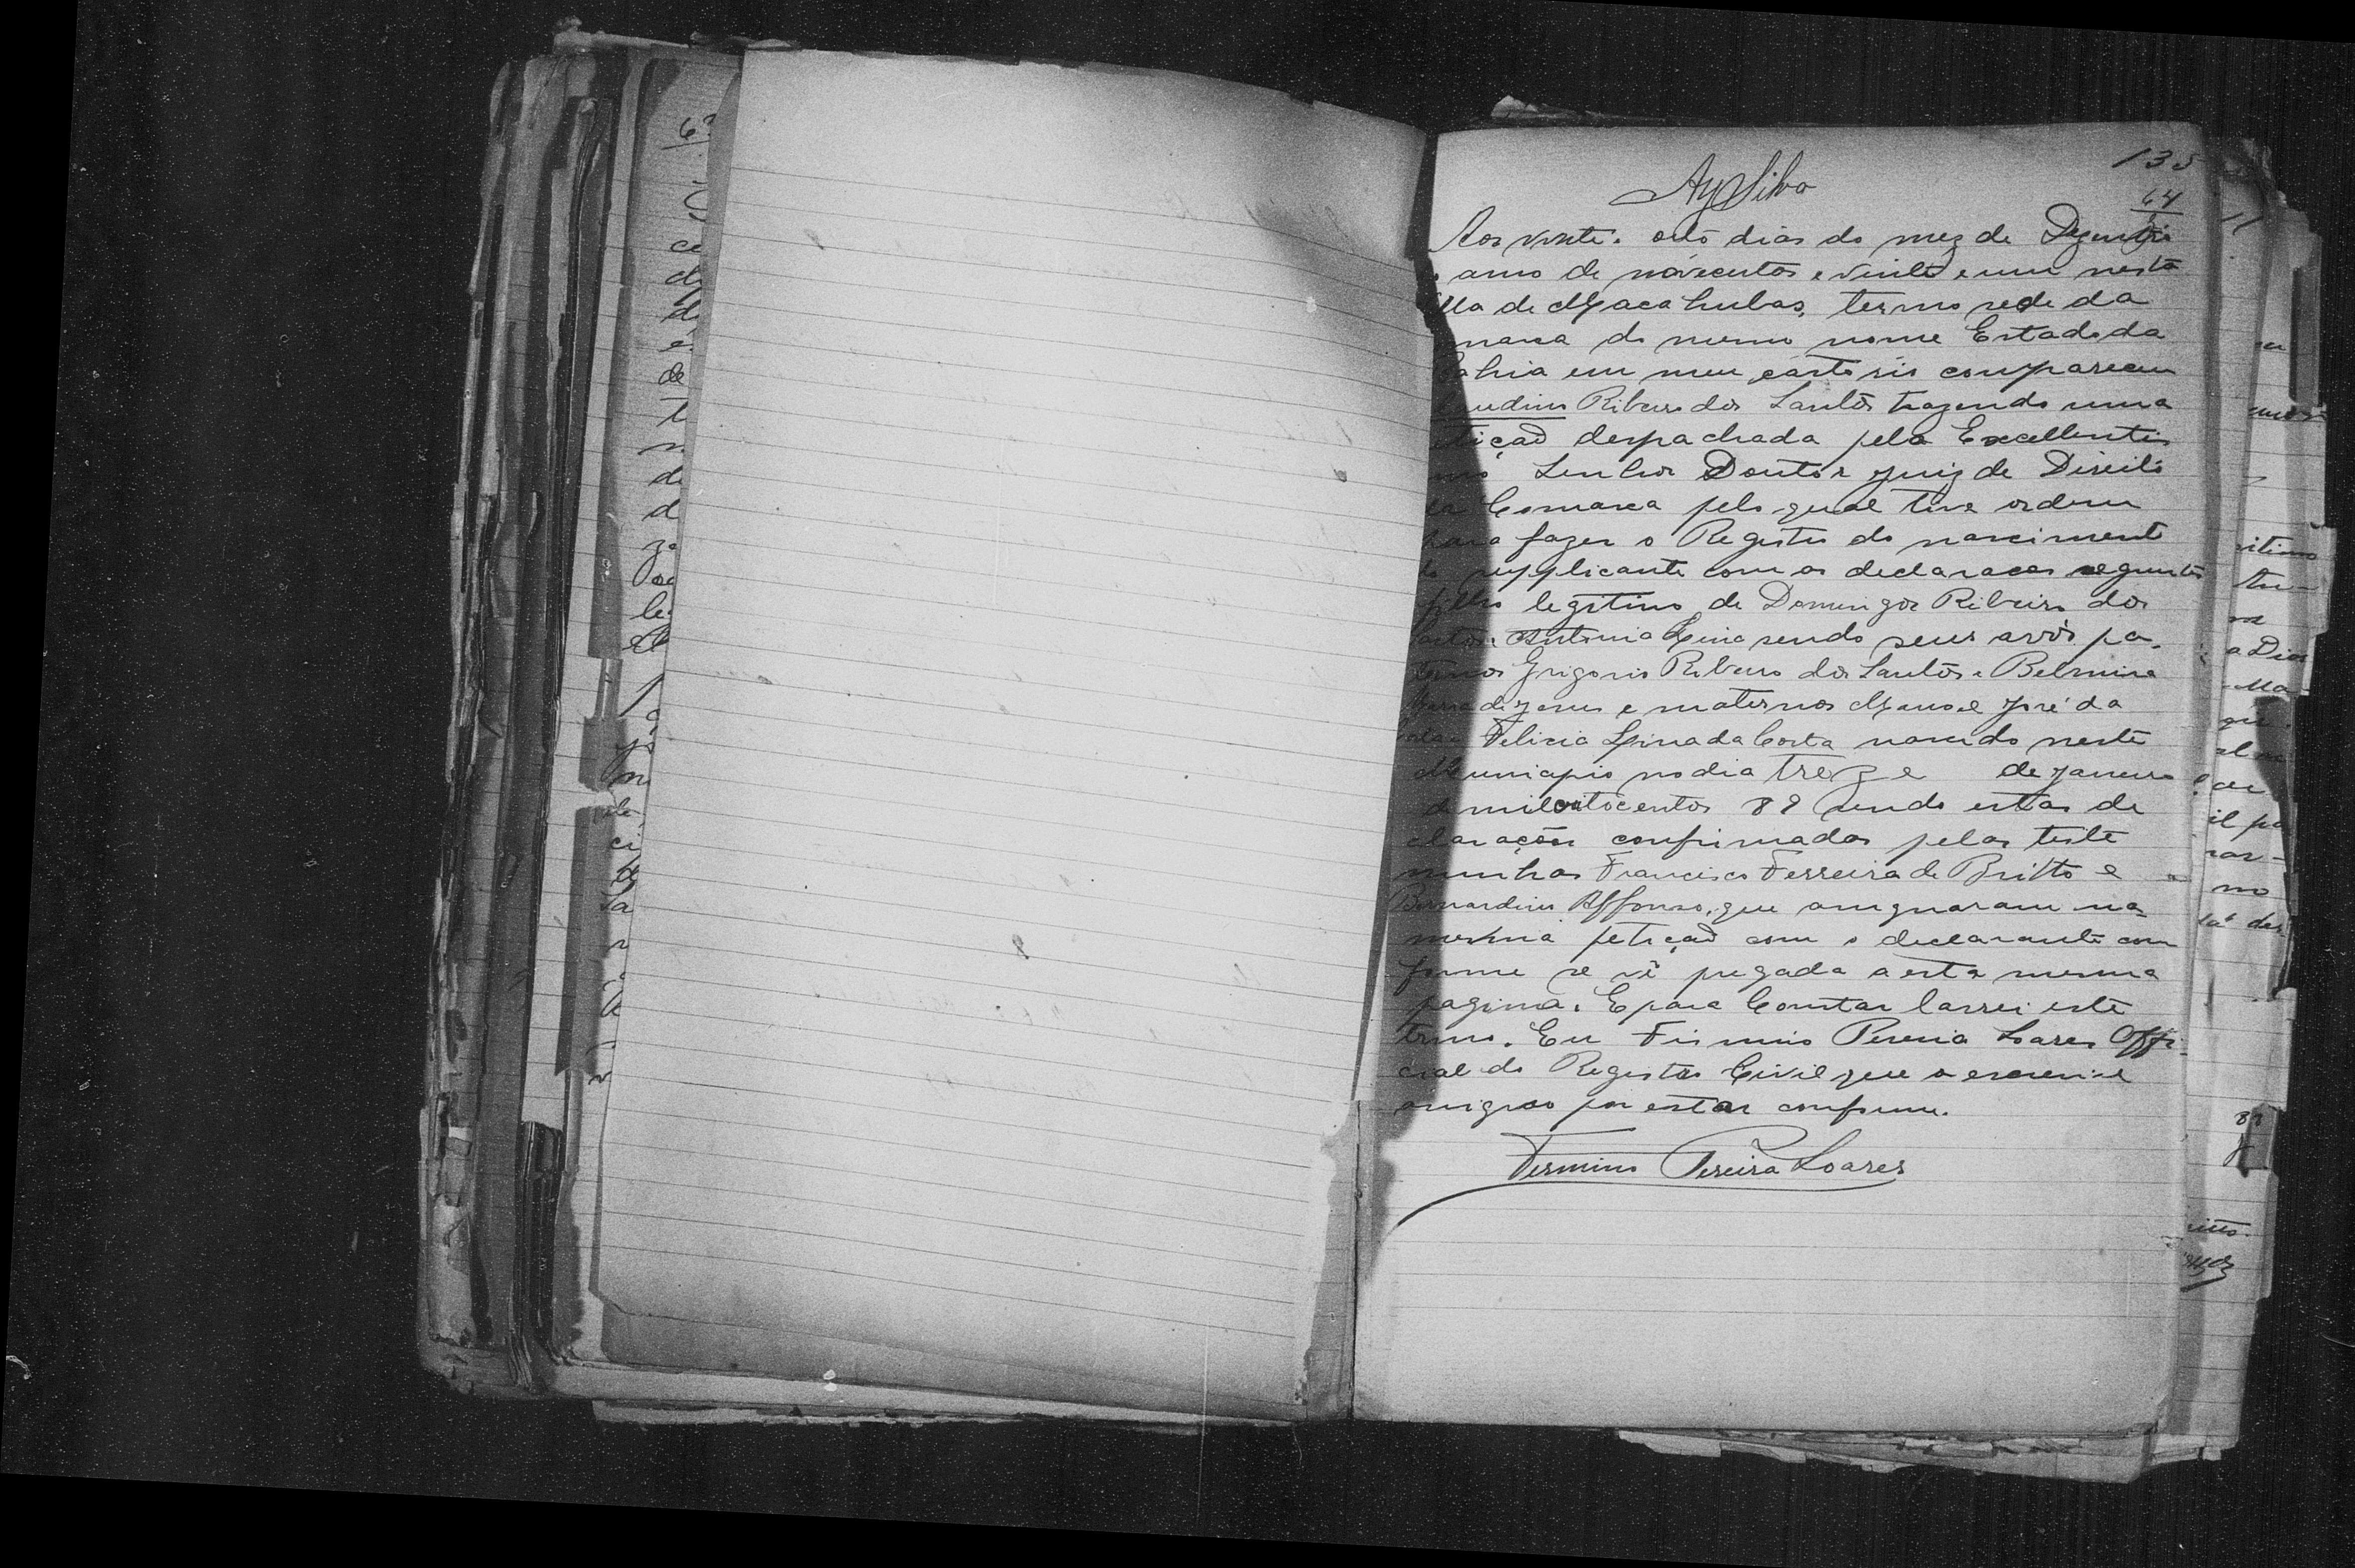 135
AgSilva
64
Aos vinte. oito dias do mez de Dezembro
anno de novecentos e vinte e um nesta
lla de Macahubas, termo sede da
marca do mesmo nome Estado da
Bahia em meu cartorio compareceu
audino Ribeiro dos Santos trazendo uma
tição despachada pelo Excellentis
mo Senhor Doutor Juiz de Direito
da Comarca pelo qual tive ordem
para fazer o Registro do nascimento
do supplicante com as declaracoes seguintes
filho legitimo de Domingos Ribeiro dos
antos e Antonia sendo seus avós pa-
ternos Grigorio Ribeiro dos Santos e Belmira
Maria de Jesus e maternos Manoel José da
Costa e Felicia Lina da Costa nascido neste
Municipio no dia treze de Janeiro
de mil oitocentos 89 sendo estas de
clarações confirmadas pelas teste
munhas Francisco Ferreira de Britto e
Bernardino Affonso, que assignaram na
mesma petição com o declarante con
forme se vê pregada a esta mesma
pagina. E para Constar lavrei este
termo. Eu Firmino Pereira Soares Offi-
cial do Registro Civil que o escrevi e
assigno por estar conforme.
Firmino Pereira Soares